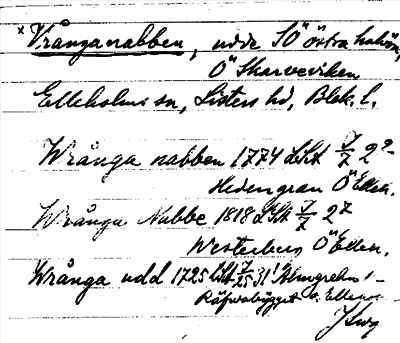 x Vrånganabben, udde SÖ östra halvön,
Ö Skarveviken
Elleholms sn, Listers hd, Blek. l.
Wrånga nabben 1774 LSt 7/7 2 2-
Hedengran Ö Ellen.
Wrånga Nabbe 1818 LSt 7/7 2 7
Westerberg Ö Ellen.
Wrånga udd 1725 LSt 7/25 31 Almgrehn
Räfvabygget o. Elleno